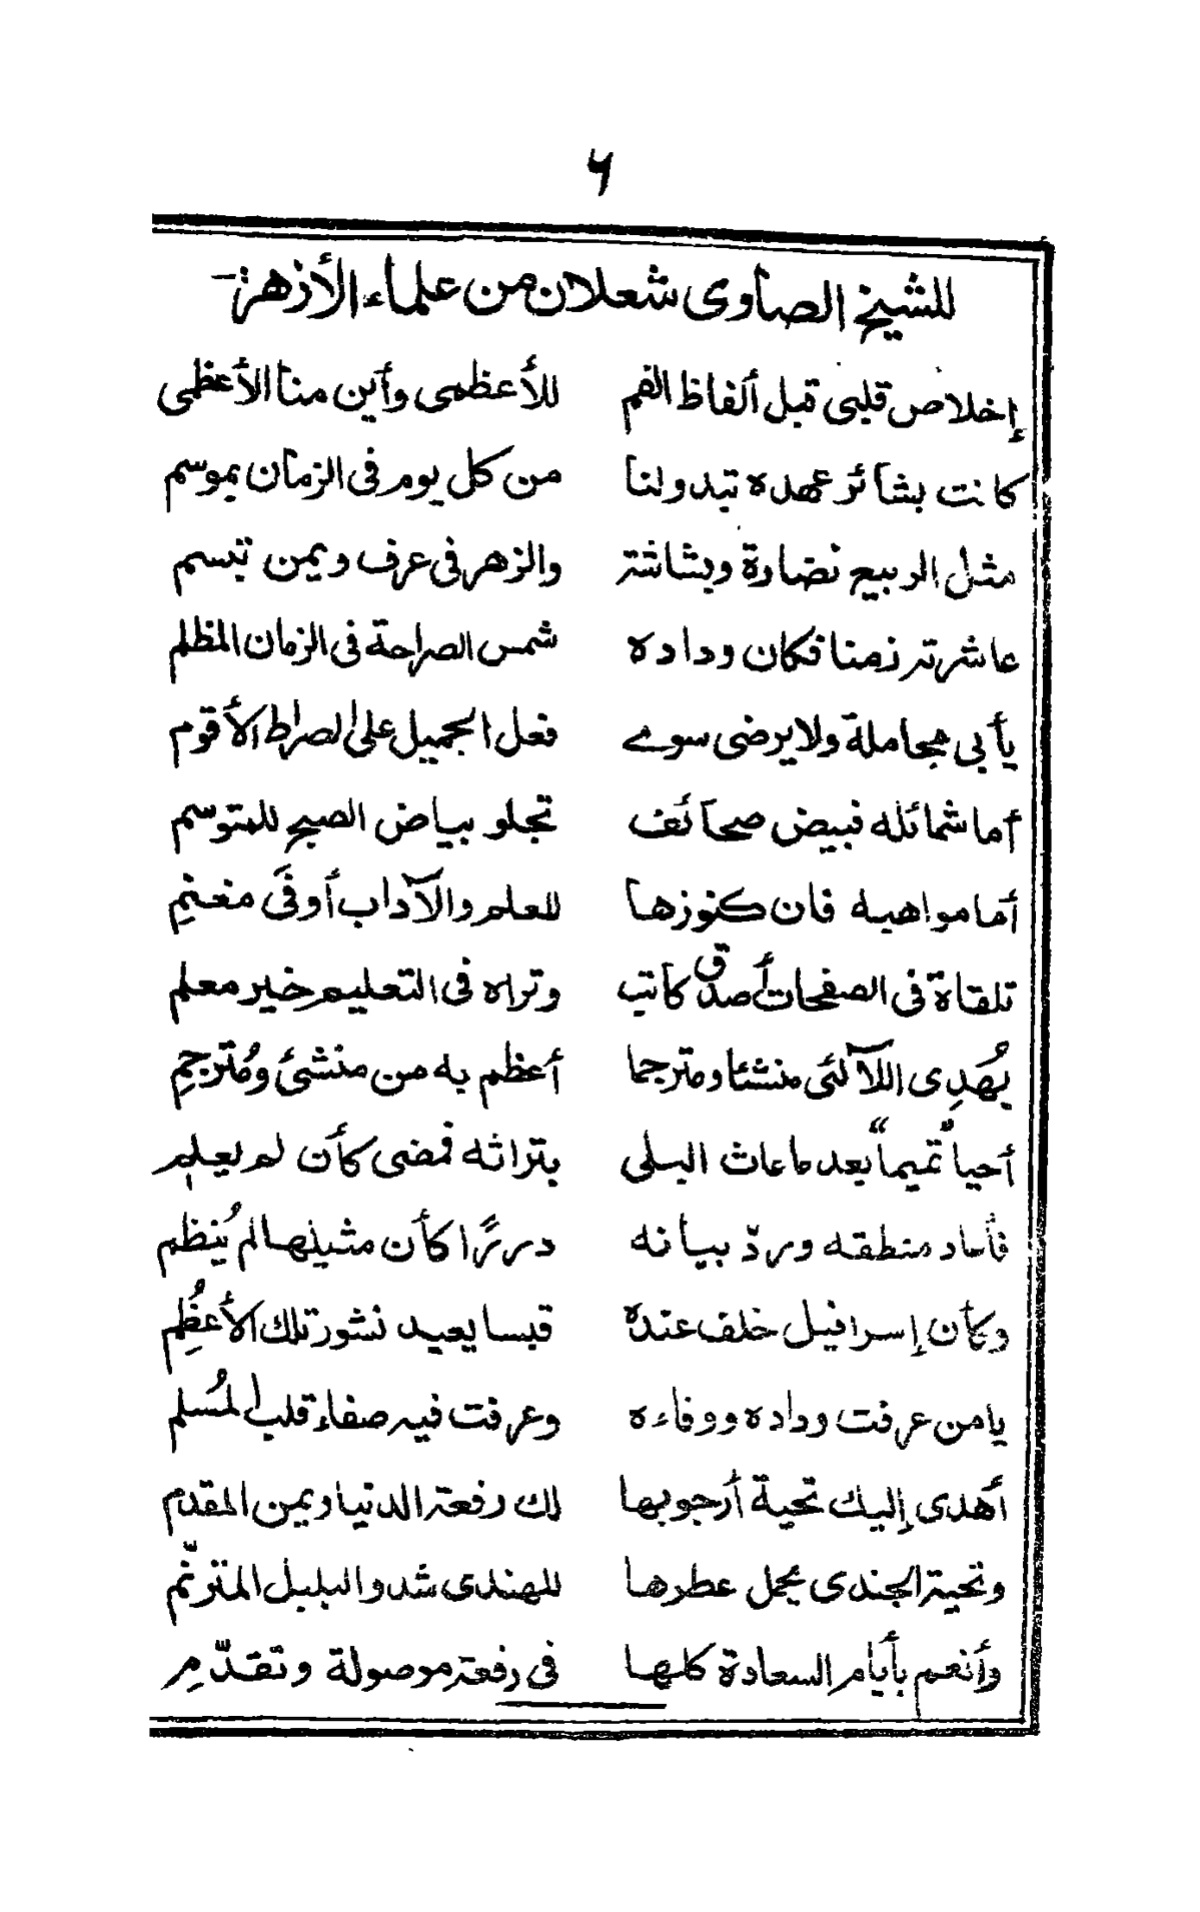 ٦
للشيخ الصاوى شعلان من علماء الأزهر:-
إخلاص قلبى قبل ألفاظ الفم للأعظمى وأين منا الأعظمى
كانت بشائر عهده تبدو لنا من كل يوم فى الزمان بموسم
مثل الربيع نضارة وبشاشة والزهر فى عرف ويمن تبسم
عاشرته زمنا فكان وداده شمس الصراحة فى الزمان المظلم
يأبى مجاملة ولا يرضى سوى فعل الجميل على الصراط الأقوم
أما شمائله فبيض صحائف تجلو بياض الصبح للمتوسم
أما مواهبه فان كنوزها للعلم والآداب أوفَى مغنمِ
تلقاة فى الصفحات أصدق كاتب وتراه فى التعليم خير معلم
يُهدِى اللآلئ منشئا ومترجما أعظم به من منشئ ومُترجمِ
أحيا "تميما" بعد ما عاث البلى بتراثه فمضى كأن لم يعلم
فأعاد منطقه وردّ بيانه دررًا كأن مثيلها لم يُنظم
وكأن إسرافيل خلف عنده قبسا يعيد نشور تلك الأعظُمِ
يامن عرفت وداده ووفاءه وعرفت فيه صفاء قلب المُسلم
أهدى إليك تحية أرجو بها لك رفعة الدنيا ويمن المقدم
وتحية الجندى يحمل عطرها للهندى شدو البلبل المترنّم
وأنعم بأيام السعادة كلها فى رفعة موصولة وتقدّمِ